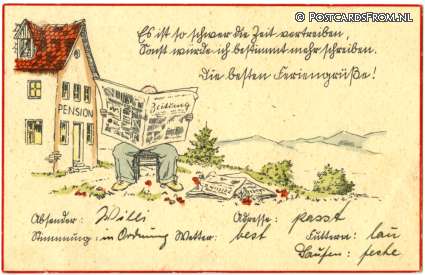 © POSTCARDSFROM.NL
Es ist so schwer die Zeit vertreiben,
Sonst würde ich bestimmt mehr schreiben.
Die besten Feriengrüße!
PENSION
Zeitung
Absender: Willi Adresse: passt
Stimmung: in Ordnung Wetter: best Futtern: lau
Saufen: feste